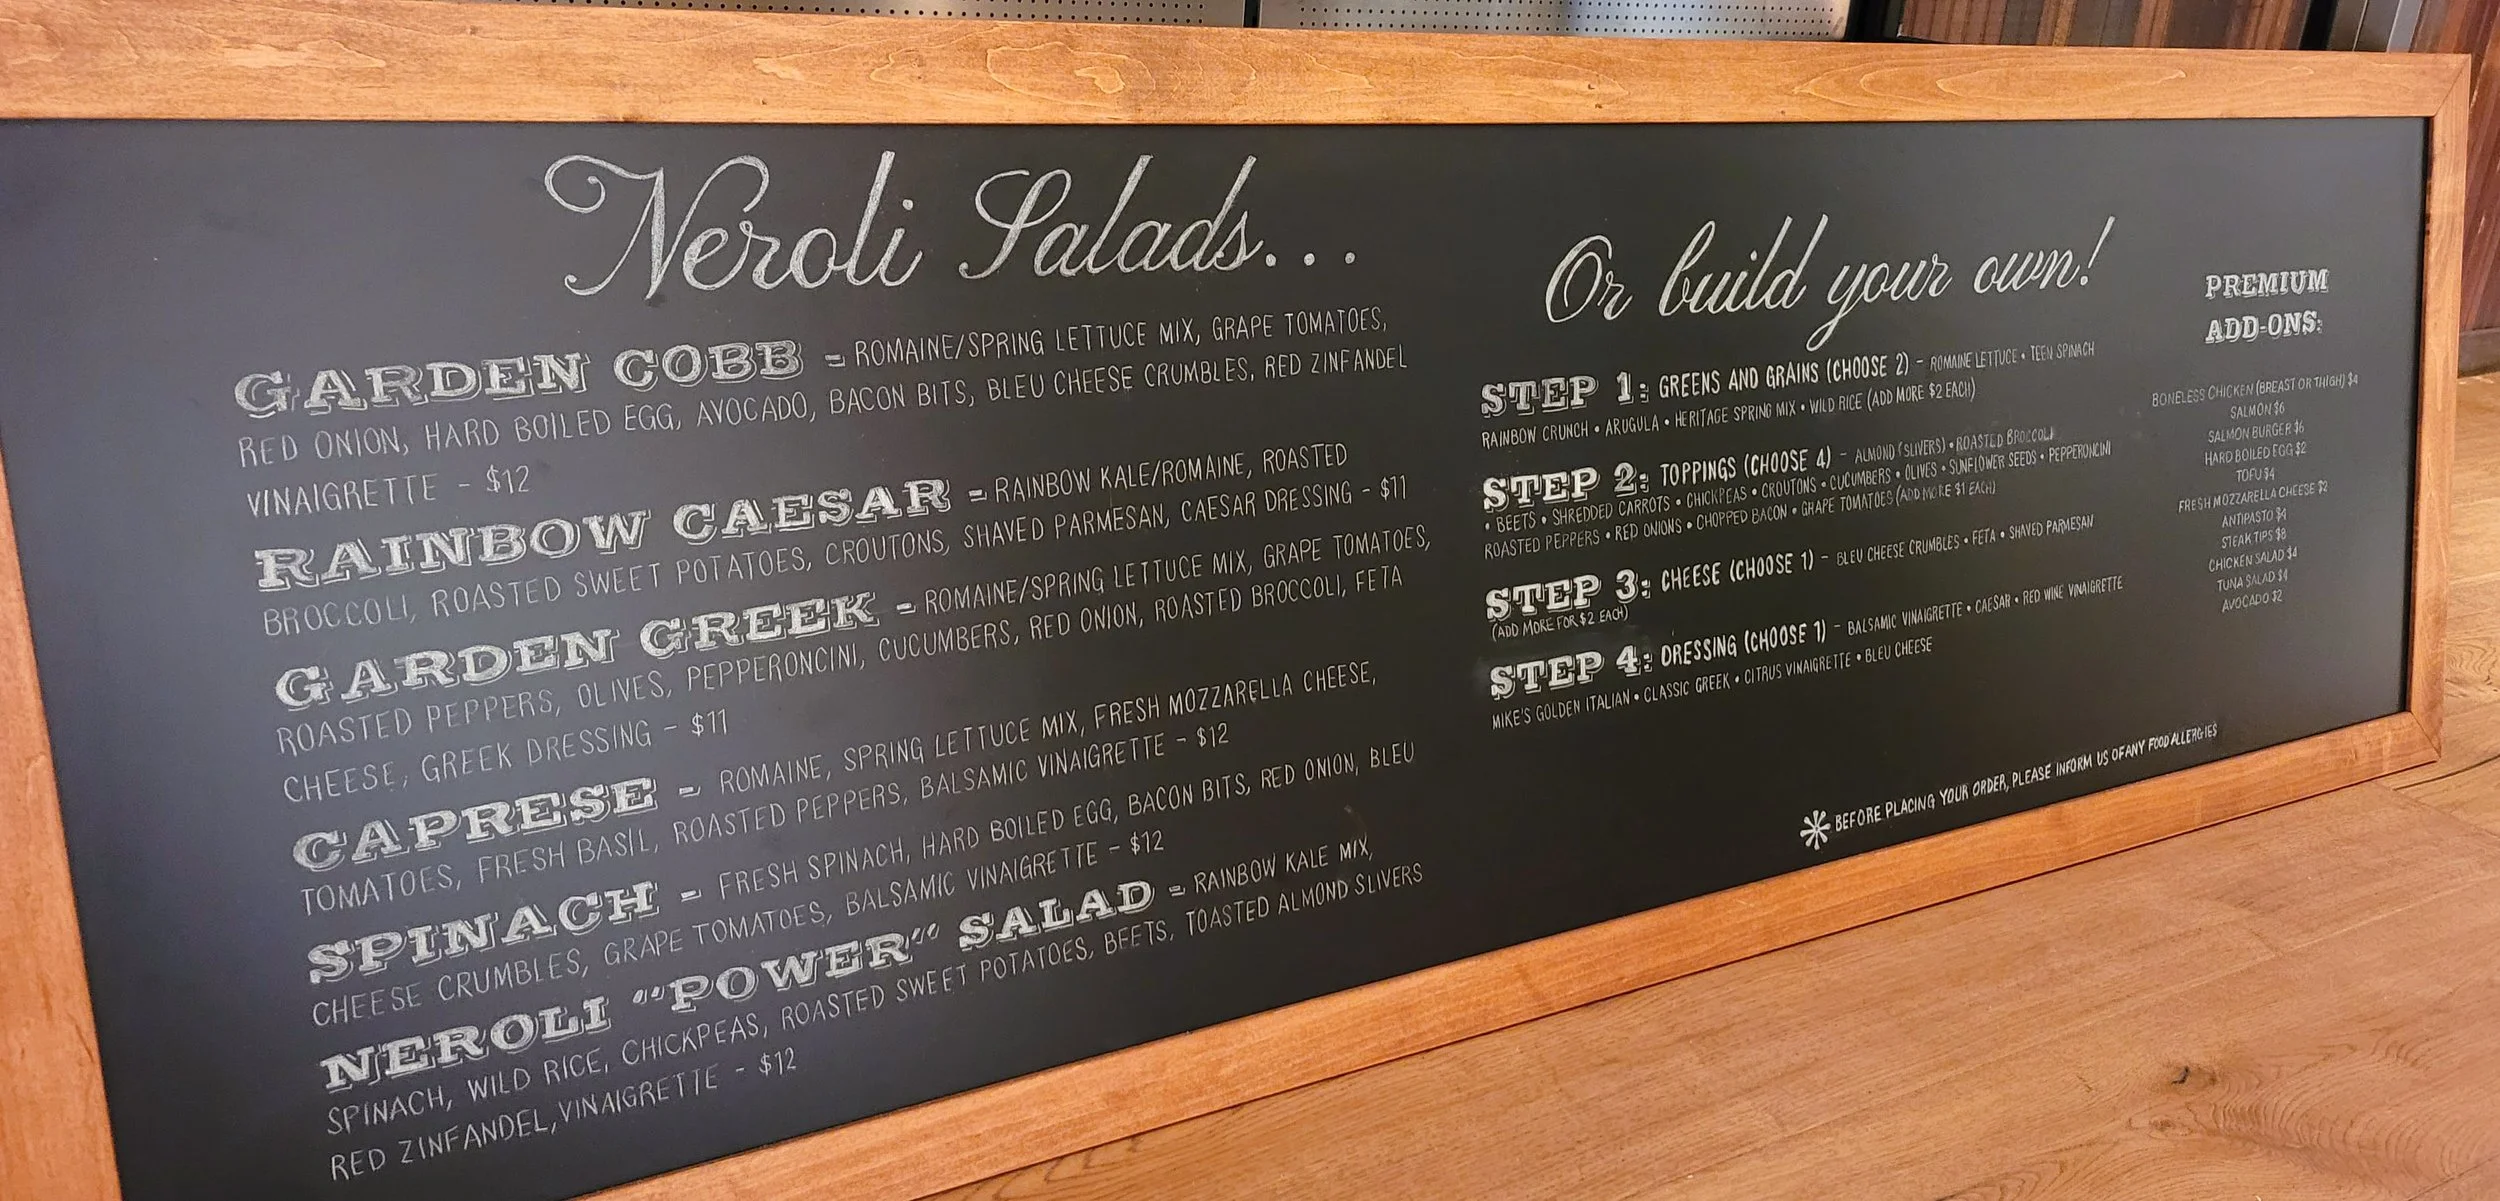 Neroli Salads...
GARDEN COBB - ROMAINE/SPRING LETTUCE MIX, GRAPE TOMATOES,
RED ONION, HARD BOILED EGG, AVOCADO, BACON BITS, BLEU CHEESE CRUMBLES, RED ZINFANDEL
VINAIGRETTE - $12
RAINBOW CAESAR - RAINBOW KALE/ROMAINE, ROASTED
BROCCOLI, ROASTED SWEET POTATOES, CROUTONS, SHAVED PARMESAN, CAESAR DRESSING - $11
GARDEN GREEK - ROMAINE/SPRING LETTUCE MIX, GRAPE TOMATOES,
ROASTED PEPPERS, OLIVES, PEPPERONCINI, CUCUMBERS, RED ONION, ROASTED BROCCOLI, FETA
CHEESE, GREEK DRESSING - $11
CAPRESE - ROMAINE, SPRING LETTUCE MIX, FRESH MOZZARELLA CHEESE,
TOMATOES, FRESH BASIL, ROASTED PEPPERS, BALSAMIC VINAIGRETTE - $12
SPINACH - FRESH SPINACH, HARD BOILED EGG, BACON BITS, RED ONION, BLEU
CHEESE CRUMBLES, GRAPE TOMATOES, BALSAMIC VINAIGRETTE - $12
NEROLI "POWER" SALAD - RAINBOW KALE MIX,
SPINACH, WILD RICE, CHICKPEAS, ROASTED SWEET POTATOES, BEETS, TOASTED ALMOND SLIVERS
RED ZINFANDEL, VINAIGRETTE - $12
Or build your own!
STEP 1: GREENS AND GRAINS (CHOOSE 2) - ROMAINE LETTUCE • TEEN SPINACH
RAINBOW CRUNCH • ARUGULA • HERITAGE SPRING MIX • WILD RICE (ADD MORE $2 EACH)
STEP 2: TOPPINGS (CHOOSE 4) - ALMOND (SLIVERS) • ROASTED BROCCOLI
• BEETS • SHREDDED CARROTS • CHICKPEAS • CROUTONS • CUCUMBERS • OLIVES • SUNFLOWER SEEDS • PEPPERONCINI
ROASTED PEPPERS • RED ONIONS • CHOPPED BACON • GRAPE TOMATOES (ADD MORE $1 EACH)
STEP 3: CHEESE (CHOOSE 1) - BLEU CHEESE CRUMBLES • FETA • SHAVED PARMESAN
(ADD MORE FOR $2 EACH)
STEP 4: DRESSING (CHOOSE 1) - BALSAMIC VINAIGRETTE • CAESAR • RED WINE VINAIGRETTE
MIKE'S GOLDEN ITALIAN • CLASSIC GREEK • CITRUS VINAIGRETTE • BLEU CHEESE
PREMIUM
ADD-ONS:
BONELESS CHICKEN (BREAST OR THIGH) $4
SALMON $6
SALMON BURGER $6
HARD BOILED EGG $2
TOFU $4
FRESH MOZZARELLA CHEESE $2
ANTIPASTO $4
STEAK TIPS $8
CHICKEN SALAD $4
TUNA SALAD $4
AVOCADO $2
* BEFORE PLACING YOUR ORDER, PLEASE INFORM US OF ANY FOOD ALLERGIES